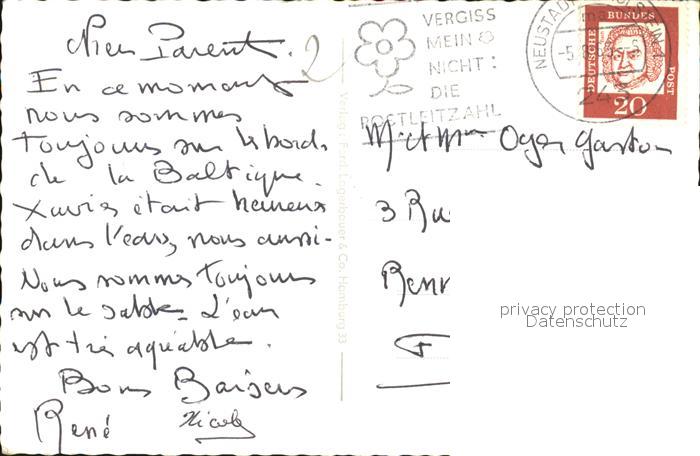 Parents.
En ce moment
nous sommes
toujours sur le bord
de la Baltique.
Xavier était heureux
dans l'eau, nous aussi.
Nous sommes toujours
sur le sable. L'eau
est très agréable.
Bons Baisers
René Nicole
2
Verlag Ferd. Lagerbauer & Co. Hamburg 33
VERGISS
MEIN
NICHT:
DIE
POSTLEITZAHL
NEUSTADT
243
DEUTSCHE BUNDES POST
20
M et Mme Oger Gaston
3 Ru
Renn
F
privacy protection
Datenschutz